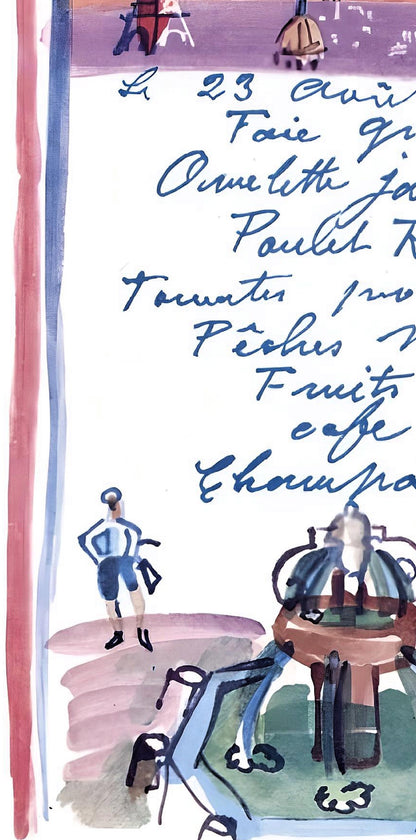 Le 23 Août
Foie gr
Omelette ja
Poulet R
Tomates pro
Pêches M
Fruits
café
Champa